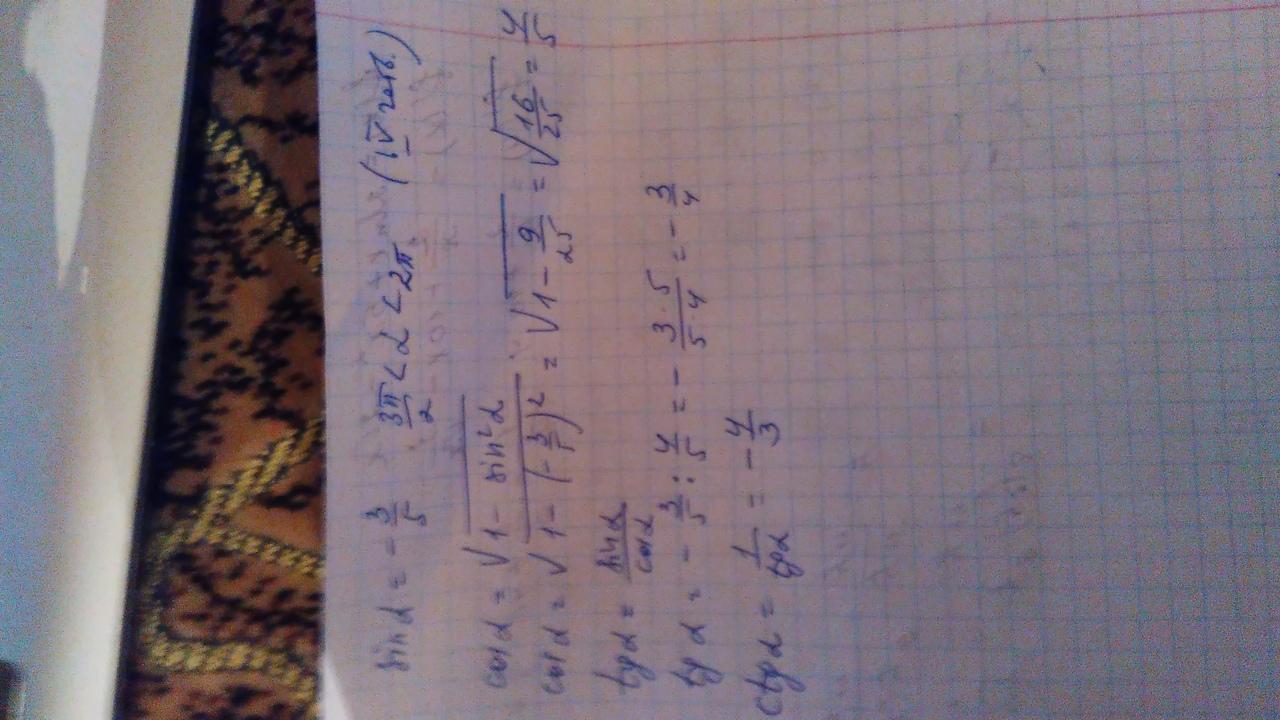 sin α = - 3/5   3π/2 < α < 2π   (IV четв.)
cos α = √(1 - sin² α)
cos α = √(1 - (-3/5)²) = √(1 - 9/25) = √(16/25) = 4/5
tg α = sin α / cos α
tg α = - 3/5 : 4/5 = - 3·5/5·4 = - 3/4
ctg α = 1/tg α = - 4/3